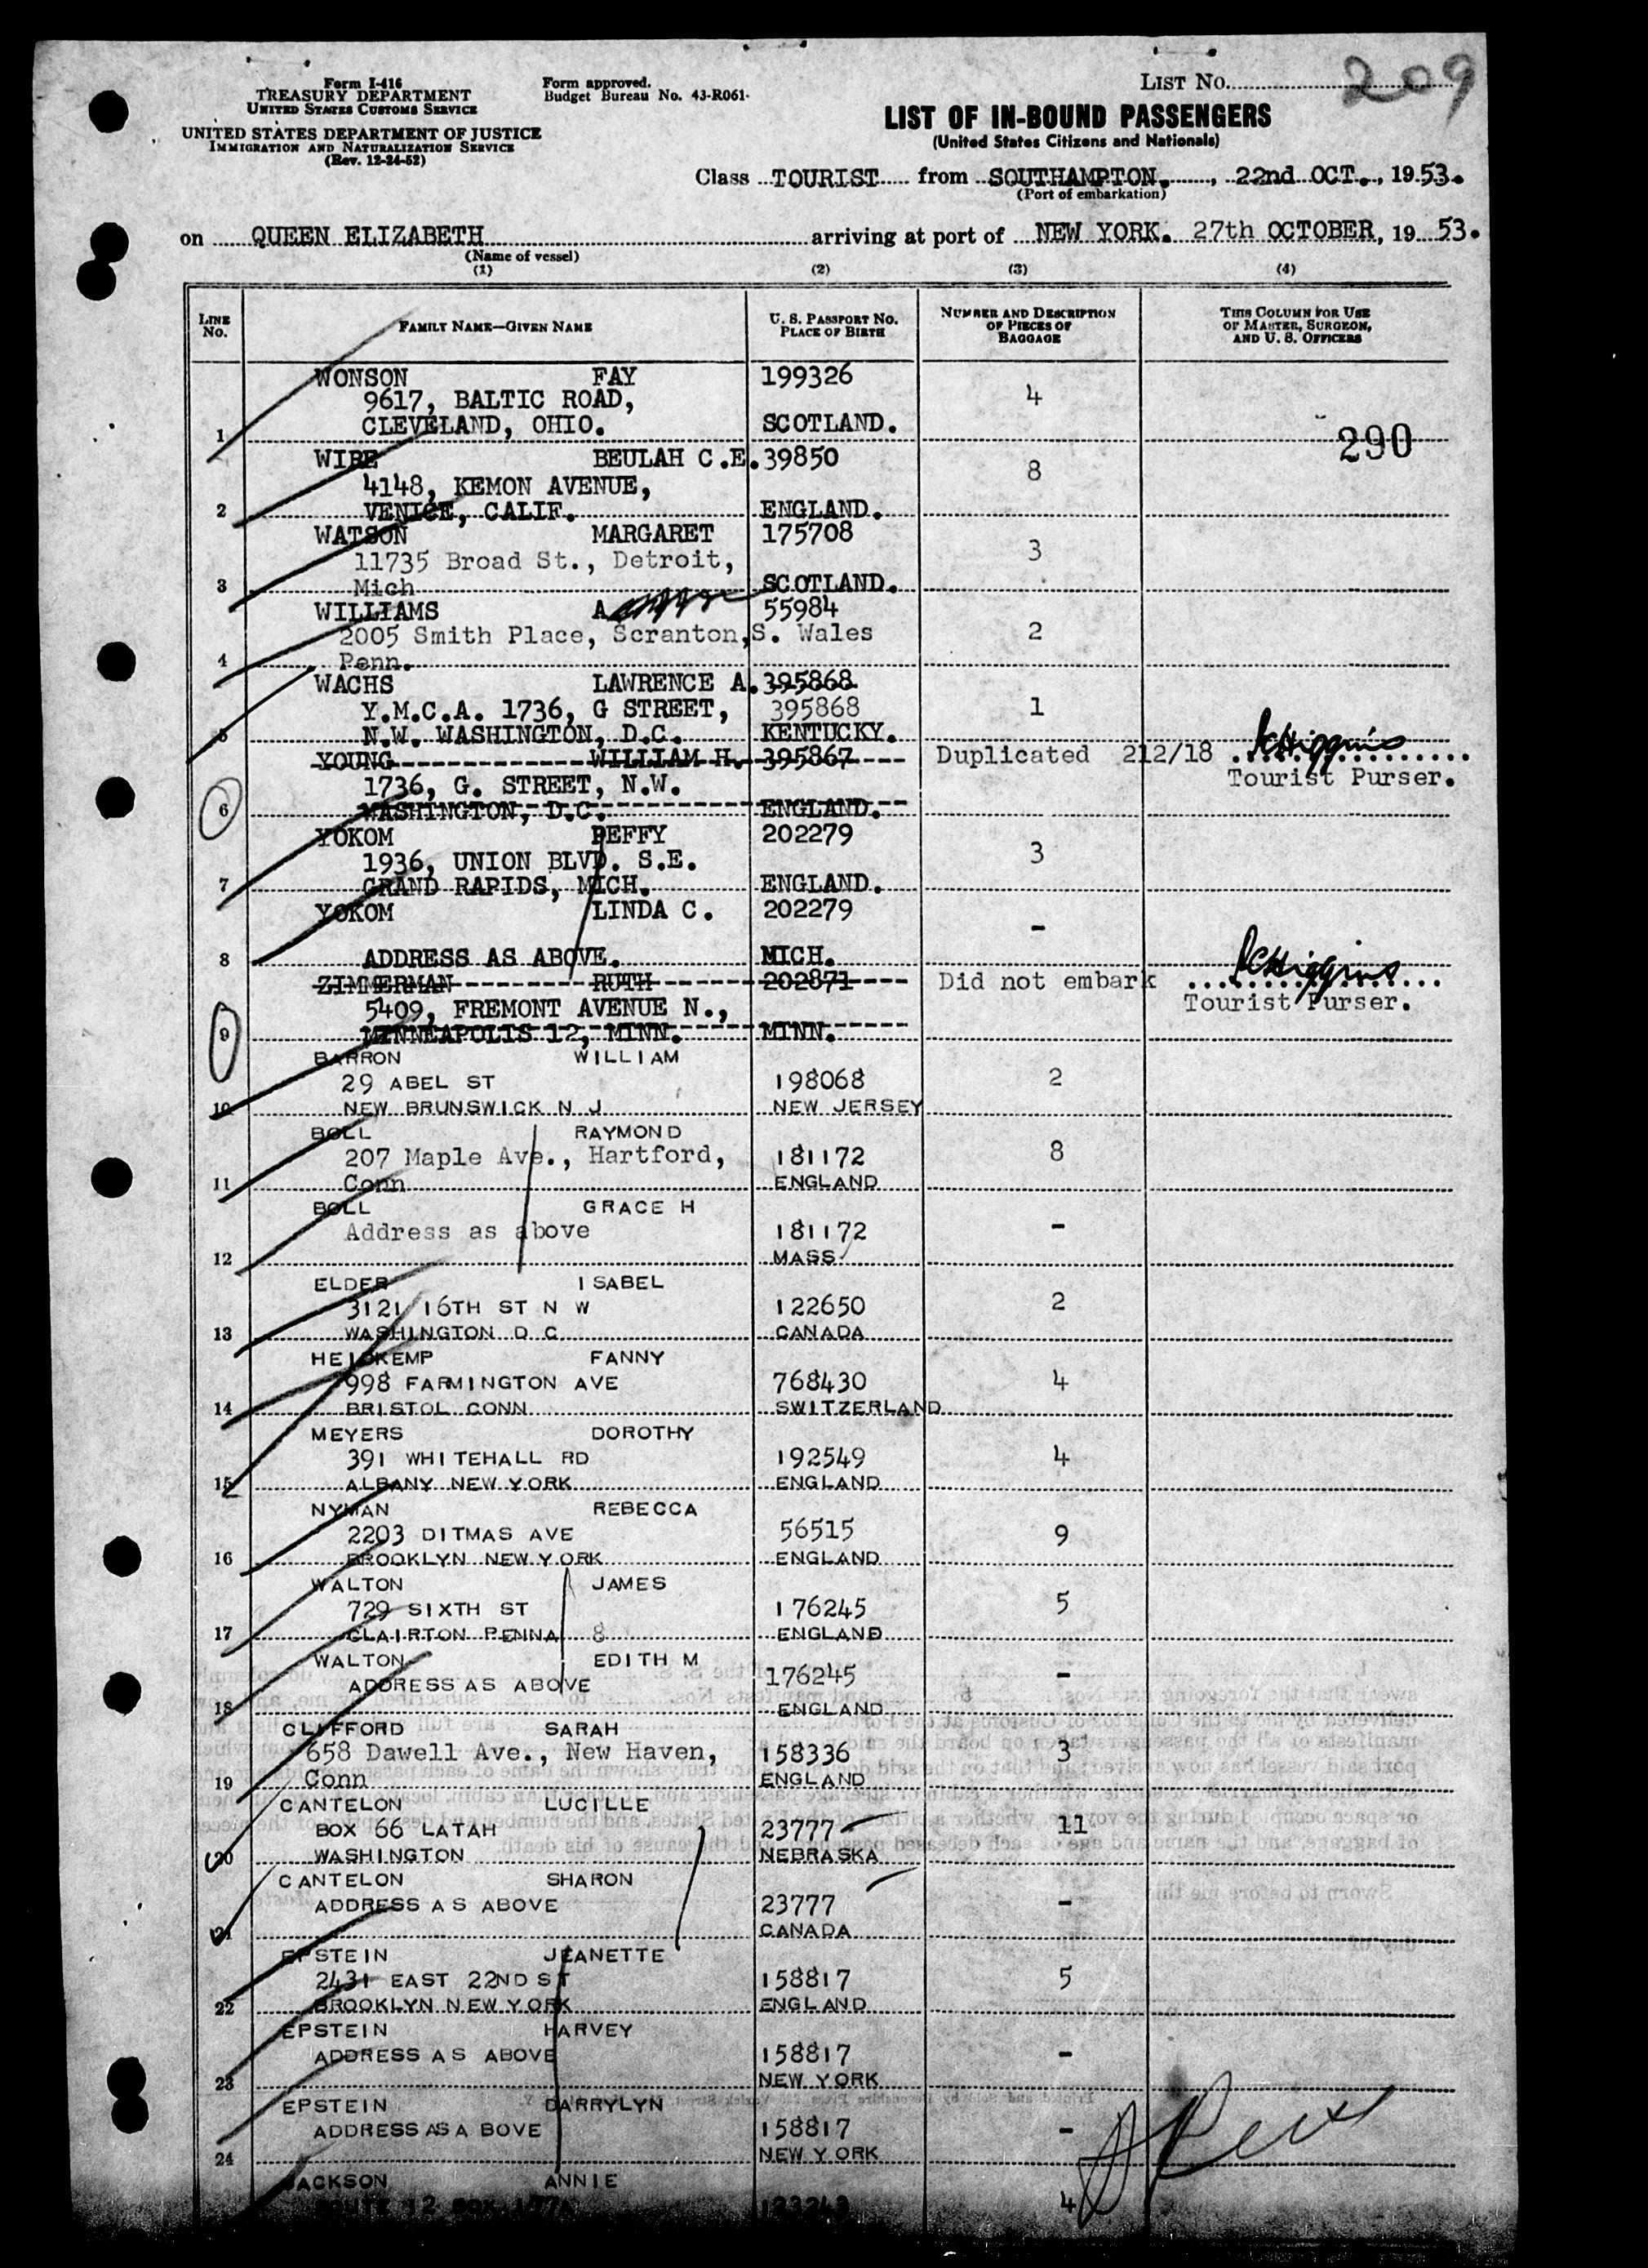 Form I-416
TREASURY DEPARTMENT
UNITED STATES CUSTOMS SERVICE
UNITED STATES DEPARTMENT OF JUSTICE
IMMIGRATION AND NATURALIZATION SERVICE
(Rev. 12-24-52)
Form approved.
Budget Bureau No. 43-R061.
LIST NO. 209
LIST OF IN-BOUND PASSENGERS
(United States Citizens and Nationals)
Class TOURIST from SOUTHAMPTON, 22nd OCT., 1953.
(Port of embarkation)
on QUEEN ELIZABETH arriving at port of NEW YORK. 27th OCTOBER, 1953.
(Name of vessel)
(1) (2) (3) (4)
LINE NO. FAMILY NAME—GIVEN NAME U. S. PASSPORT NO. PLACE OF BIRTH NUMBER AND DESCRIPTION OF PIECES OF BAGGAGE THIS COLUMN FOR USE OF MASTER, SURGEON, AND U. S. OFFICERS
WONSON FAY 199326
9617, BALTIC ROAD, 4
1 CLEVELAND, OHIO. SCOTLAND.
290
WIRE BEULAH C.E. 39850
4148, KEMON AVENUE, 8
2 VENICE, CALIF. ENGLAND.
WATSON MARGARET 175708
11735 Broad St., Detroit, 3
3 Mich SCOTLAND.
WILLIAMS A 55984
2005 Smith Place, Scranton, S. Wales 2
4 Penn.
WACHS LAWRENCE A. 395868
Y.M.C.A. 1736, G STREET, 395868 1
5 N.W. WASHINGTON, D.C. KENTUCKY.
YOUNG WILLIAM H. 395867 Duplicated 212/18 Higgins
1736, G. STREET, N.W. Tourist Purser.
6 WASHINGTON, D.C. ENGLAND.
YOKOM PEFFY 202279
1936, UNION BLVD. S.E. 3
7 GRAND RAPIDS, MICH. ENGLAND.
YOKOM LINDA C. 202279
-
8 ADDRESS AS ABOVE. MICH.
ZIMMERMAN RUTH 202871 Did not embark Higgins
5409, FREMONT AVENUE N., Tourist Purser.
9 MINNEAPOLIS 12, MINN. MINN.
BARRON WILLIAM
29 ABEL ST 198068 2
10 NEW BRUNSWICK N J NEW JERSEY
BOLL RAYMOND
207 Maple Ave., Hartford, 181172 8
11 Conn ENGLAND
BOLL GRACE H
Address as above 181172 -
12 MASS
ELDER ISABEL
3121 16TH ST N W 122650 2
13 WASHINGTON D C CANADA
HEIDKEMP FANNY
998 FARMINGTON AVE 768430 4
14 BRISTOL CONN SWITZERLAND
MEYERS DOROTHY
391 WHITEHALL RD 192549 4
15 ALBANY NEW YORK ENGLAND
NYMAN REBECCA
2203 DITMAS AVE 56515 9
16 BROOKLYN NEW YORK ENGLAND
WALTON JAMES
729 SIXTH ST 176245 5
17 CLAIRTON PENNA 8 ENGLAND
WALTON EDITH M
ADDRESS AS ABOVE 176245 -
18 ENGLAND
CLIFFORD SARAH
658 Dawell Ave., New Haven, 158336 3
19 Conn ENGLAND
CANTELON LUCILLE
BOX 66 LATAH 23777 11
20 WASHINGTON NEBRASKA
CANTELON SHARON
ADDRESS AS ABOVE 23777 -
21 CANADA
EPSTEIN JEANETTE
2431 EAST 22ND ST 158817 5
22 BROOKLYN NEW YORK ENGLAND
EPSTEIN HARVEY
ADDRESS AS ABOVE 158817 -
23 NEW YORK
EPSTEIN DARRYLYN
ADDRESS AS ABOVE 158817 -
24 NEW YORK
JACKSON ANNIE
ROUTE 12 BOX 4